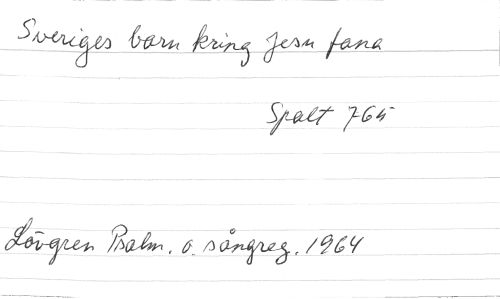 Sveriges barn kring Jesu fana
Spalt 765
Lövgren Psalm. o. sångreg. 1964